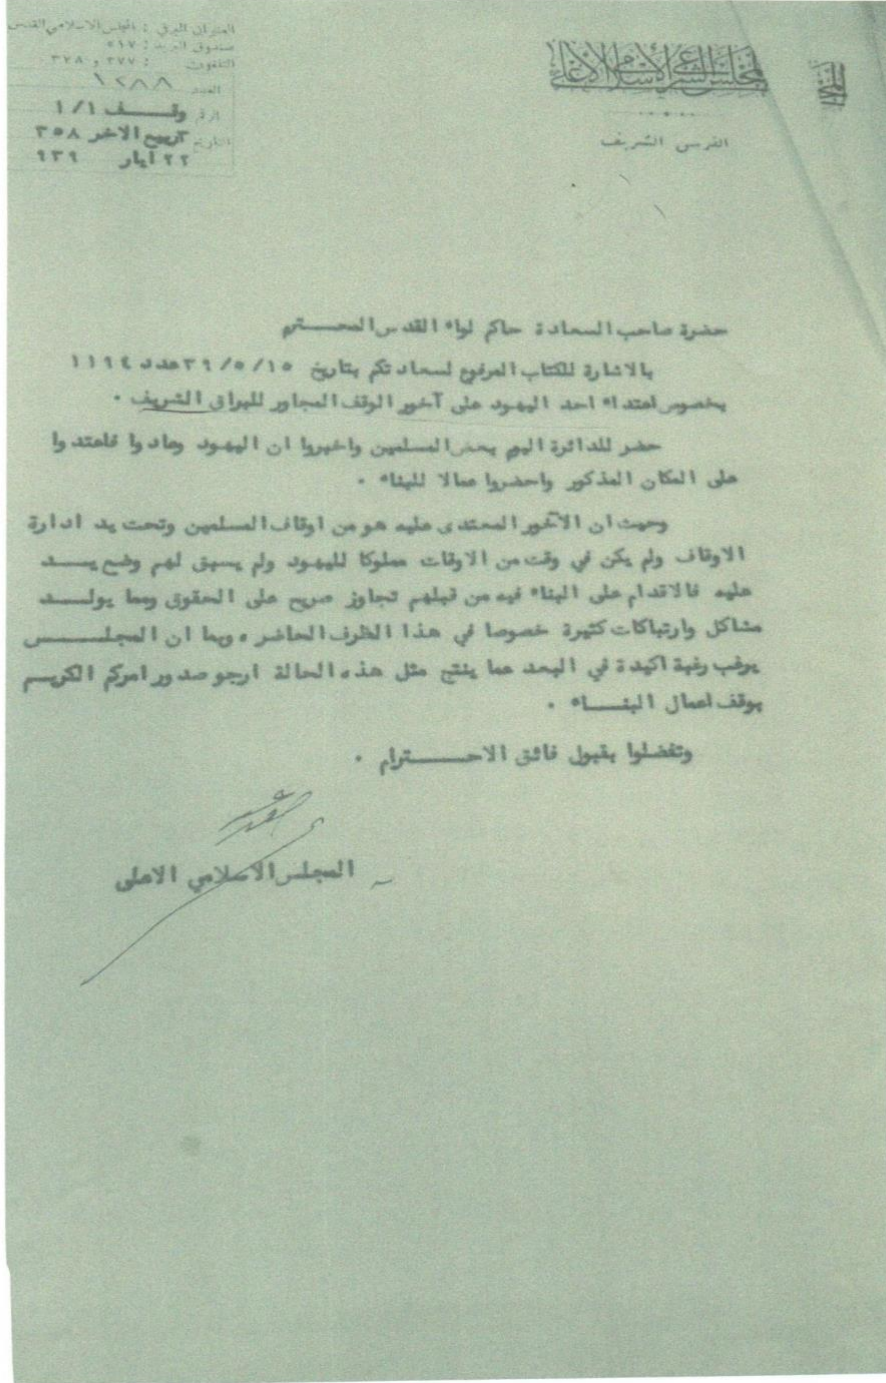 المجلس الشرعي الإسلامي الأعلى
القدس الشريف
العنوان البرقي : المجلس الاسلامي القدس
صندوق البريد : ٥١٧
التلفون : ٢٧٧ و ٢٧٨
العدد ١٢٨٨
الرقم وقف ١/١
التاريخ ٣ ربيع الاخر ٣٥٨
٢٢ ايار ٩٣٩
حضرة صاحب السعادة حاكم لواء القدس المحترم
بالاشارة للكتاب المرفوع لسعادتكم بتاريخ ٣٩/٥/١٥ عدد ١١٩٤
بخصوص اعتداء احد اليهود على آخور الوقف المجاور للبراق الشريف .
حضر للدائرة اليوم بعض المسلمين واخبروا ان اليهود وعادوا فاعتدوا
على المكان المذكور واحضروا عمالا للبناء .
وحيث ان الآخور المعتدى عليه هو من اوقاف المسلمين وتحت يد ادارة
الاوقاف ولم يكن في وقت من الاوقات مملوكا لليهود ولم يسبق لهم وضع يد
عليه فالاقدام على البناء فيه من قبلهم تجاوز صريح على الحقوق ومما يولد
مشاكل وارتباكات كثيرة خصوصا في هذا الظرف الحاضر ، وبما ان المجلس
يرغب رغبة اكيدة في البعد عما ينتج مثل هذه الحالة ارجو صدور امركم الكريم
بوقف اعمال البناء .
وتفضلوا بقبول فائق الاحترام .
المجلس الاسلامي الاعلى